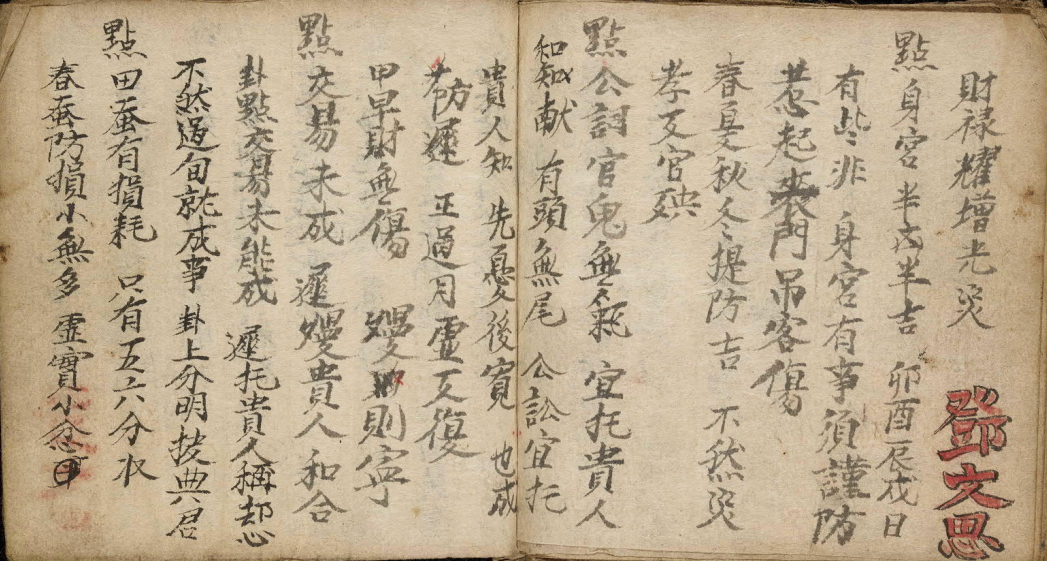 財禄耀增光災
鄧文思
點身宮半凶半吉 卯酉辰戌日
有些非 身宮有事須謹防
惹起喪門吊客傷
春夏秋冬提防吉 不然災
孝又官殃
點公詞官鬼無氣 宜托貴人
知献 有頭無尾 公訟宜托
貴人知 先憂後寬 也成
防遲 正過月虛又復
甲早財無傷 慢則寧
點交易未成 遲慢貴人和合
卦點交易未能成 遲托貴人稱却心
不然過旬就成事 卦上分明披典君
點田蚕有損耗 只有五六分收
春蚕防損小無多 虛實小